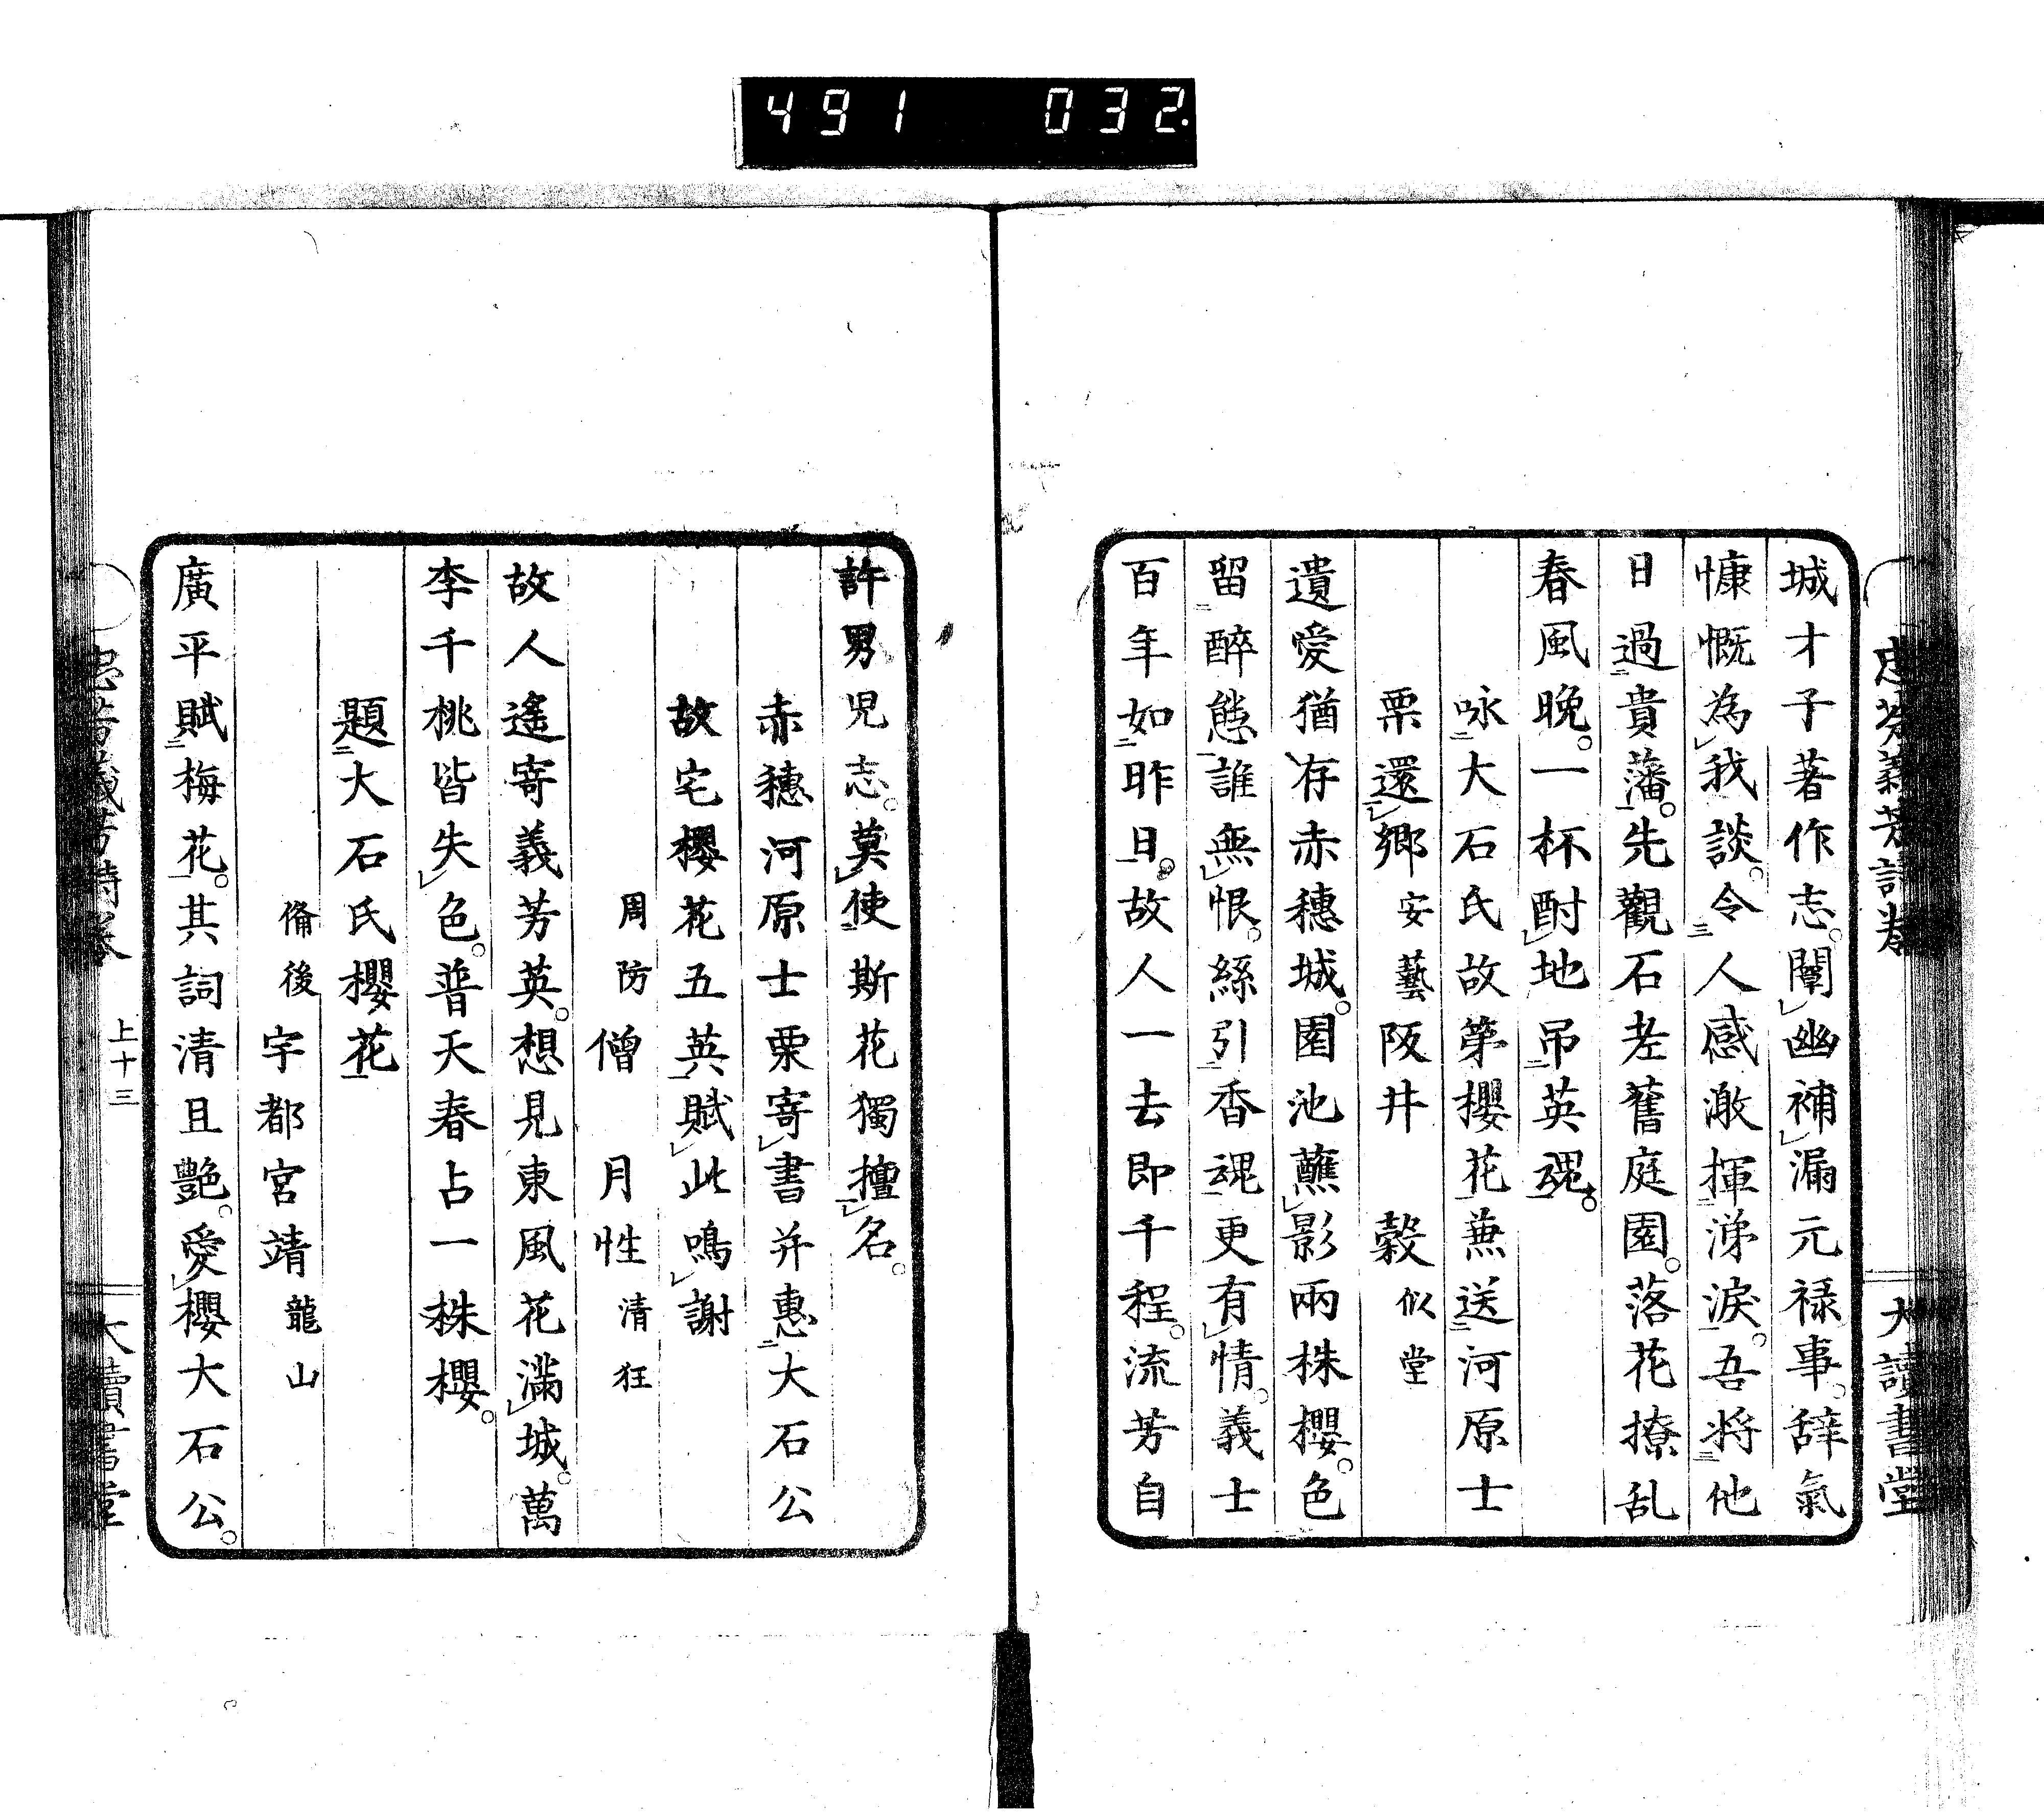 491 032.
城才子著作志。闡幽補漏元禄事。辞氣
慷慨為我談。令人感激揮涕淚。吾將他
日過貴藩。先觀石老舊庭園。落花撩乱
春風晩。一杯酎地吊英魂。
咏大石氏故第櫻花兼送河原士
栗還郷 安藝 阪井 毅 似堂
遺愛猶存赤穗城。園池蘸影兩株櫻。色
留醉態誰無恨。絲引香魂更有情。義士
百年如昨日。故人一去即千程。流芳自
許男児志。莫使斯花獨擅名。
赤穗河原士栗寄書并惠大石公
故宅櫻花五英賦此鳴謝
周防 僧 月性 清狂
故人遙寄義芳英。想見東風花滿城。萬
李千桃皆失色。普天春占一株櫻。
題大石氏櫻花
備後 宇都宮靖 龍山
廣平賦梅花。其詞清且艶。愛櫻大石公。
上十三
大讀書堂